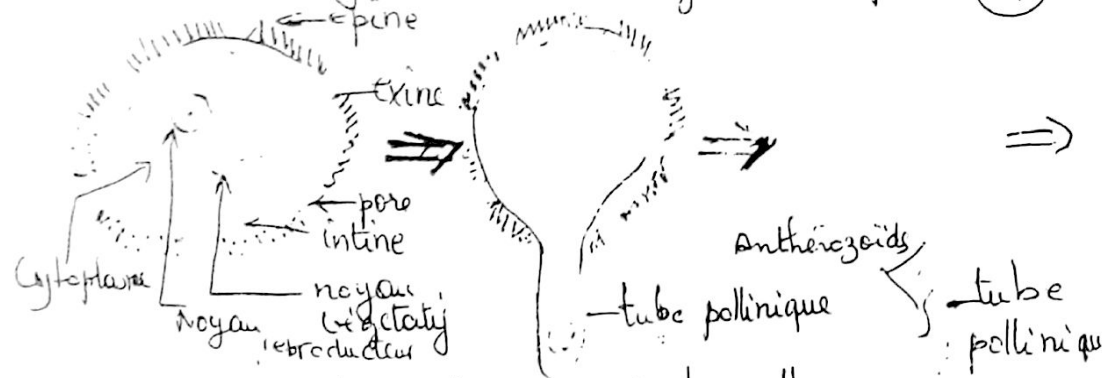 épine
Exine
pore
intine
Cytoplasme
noyau
végétatif
Noyau
reproducteur
tube pollinique
Anthérozoïds
tube
polliniqu